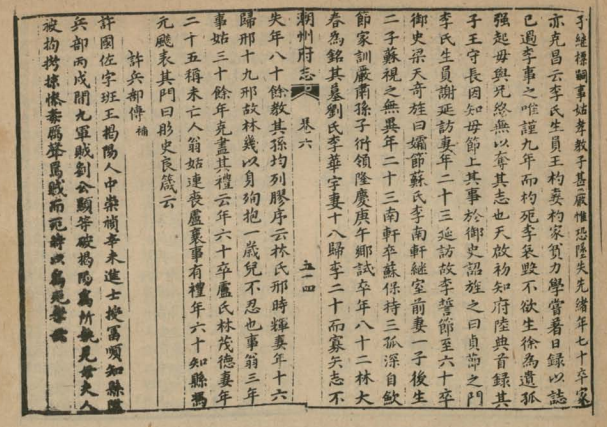 亦克昌云李氏生員王杓妻杓家貧力學嘗著日錄以誌
子繼櫟嗣事姑孝教子甚嚴惟恐墜失先緒年七十卒家
已過李事之唯謹九年而杓死李衰毀不欲生徐為遺孤
強起毋與兄終無以奪其志也天啟初知府陸典首錄其
子王守長因知毋節上其事於御史詔旌之曰貞節之門
李氏生員謝延訪妻年二十三延訪故李誓節至六十卒
御史梁天奇旌曰孀節蘇氏李南軒繼室前妻一子後生
二子蘇視之無異年二十三南軒卒蘇保持三孤深自飲
節家訓嚴肅孫子衍領隆慶庚午鄉試卒年八十二林大
春為銘其墓劉氏李華宇妻十八歸李二十而寡矢志不
潮州府志 卷六 五一四
失年八十餘教其孫均列膠序云林氏邢時輝妻年十六
歸邢十九邢故林幾以身殉抱一歲兒不忍也事翁三年
事姑三十餘年克盡其禮云年六十卒盧氏林茂德妻年
二十五稱未亡人翁姑連喪盧襄事有禮年六十知縣馮
元飈表其門曰彤史良箴云
許兵部傳 補
許國佐字班王揭陽人中崇禎辛未進士授富順知縣遷
兵部丙戌間九軍賊劉公顯等破揭陽為所執見母夫人
被拘拷掠慘毒厲聲罵賊而死時以為死孝云